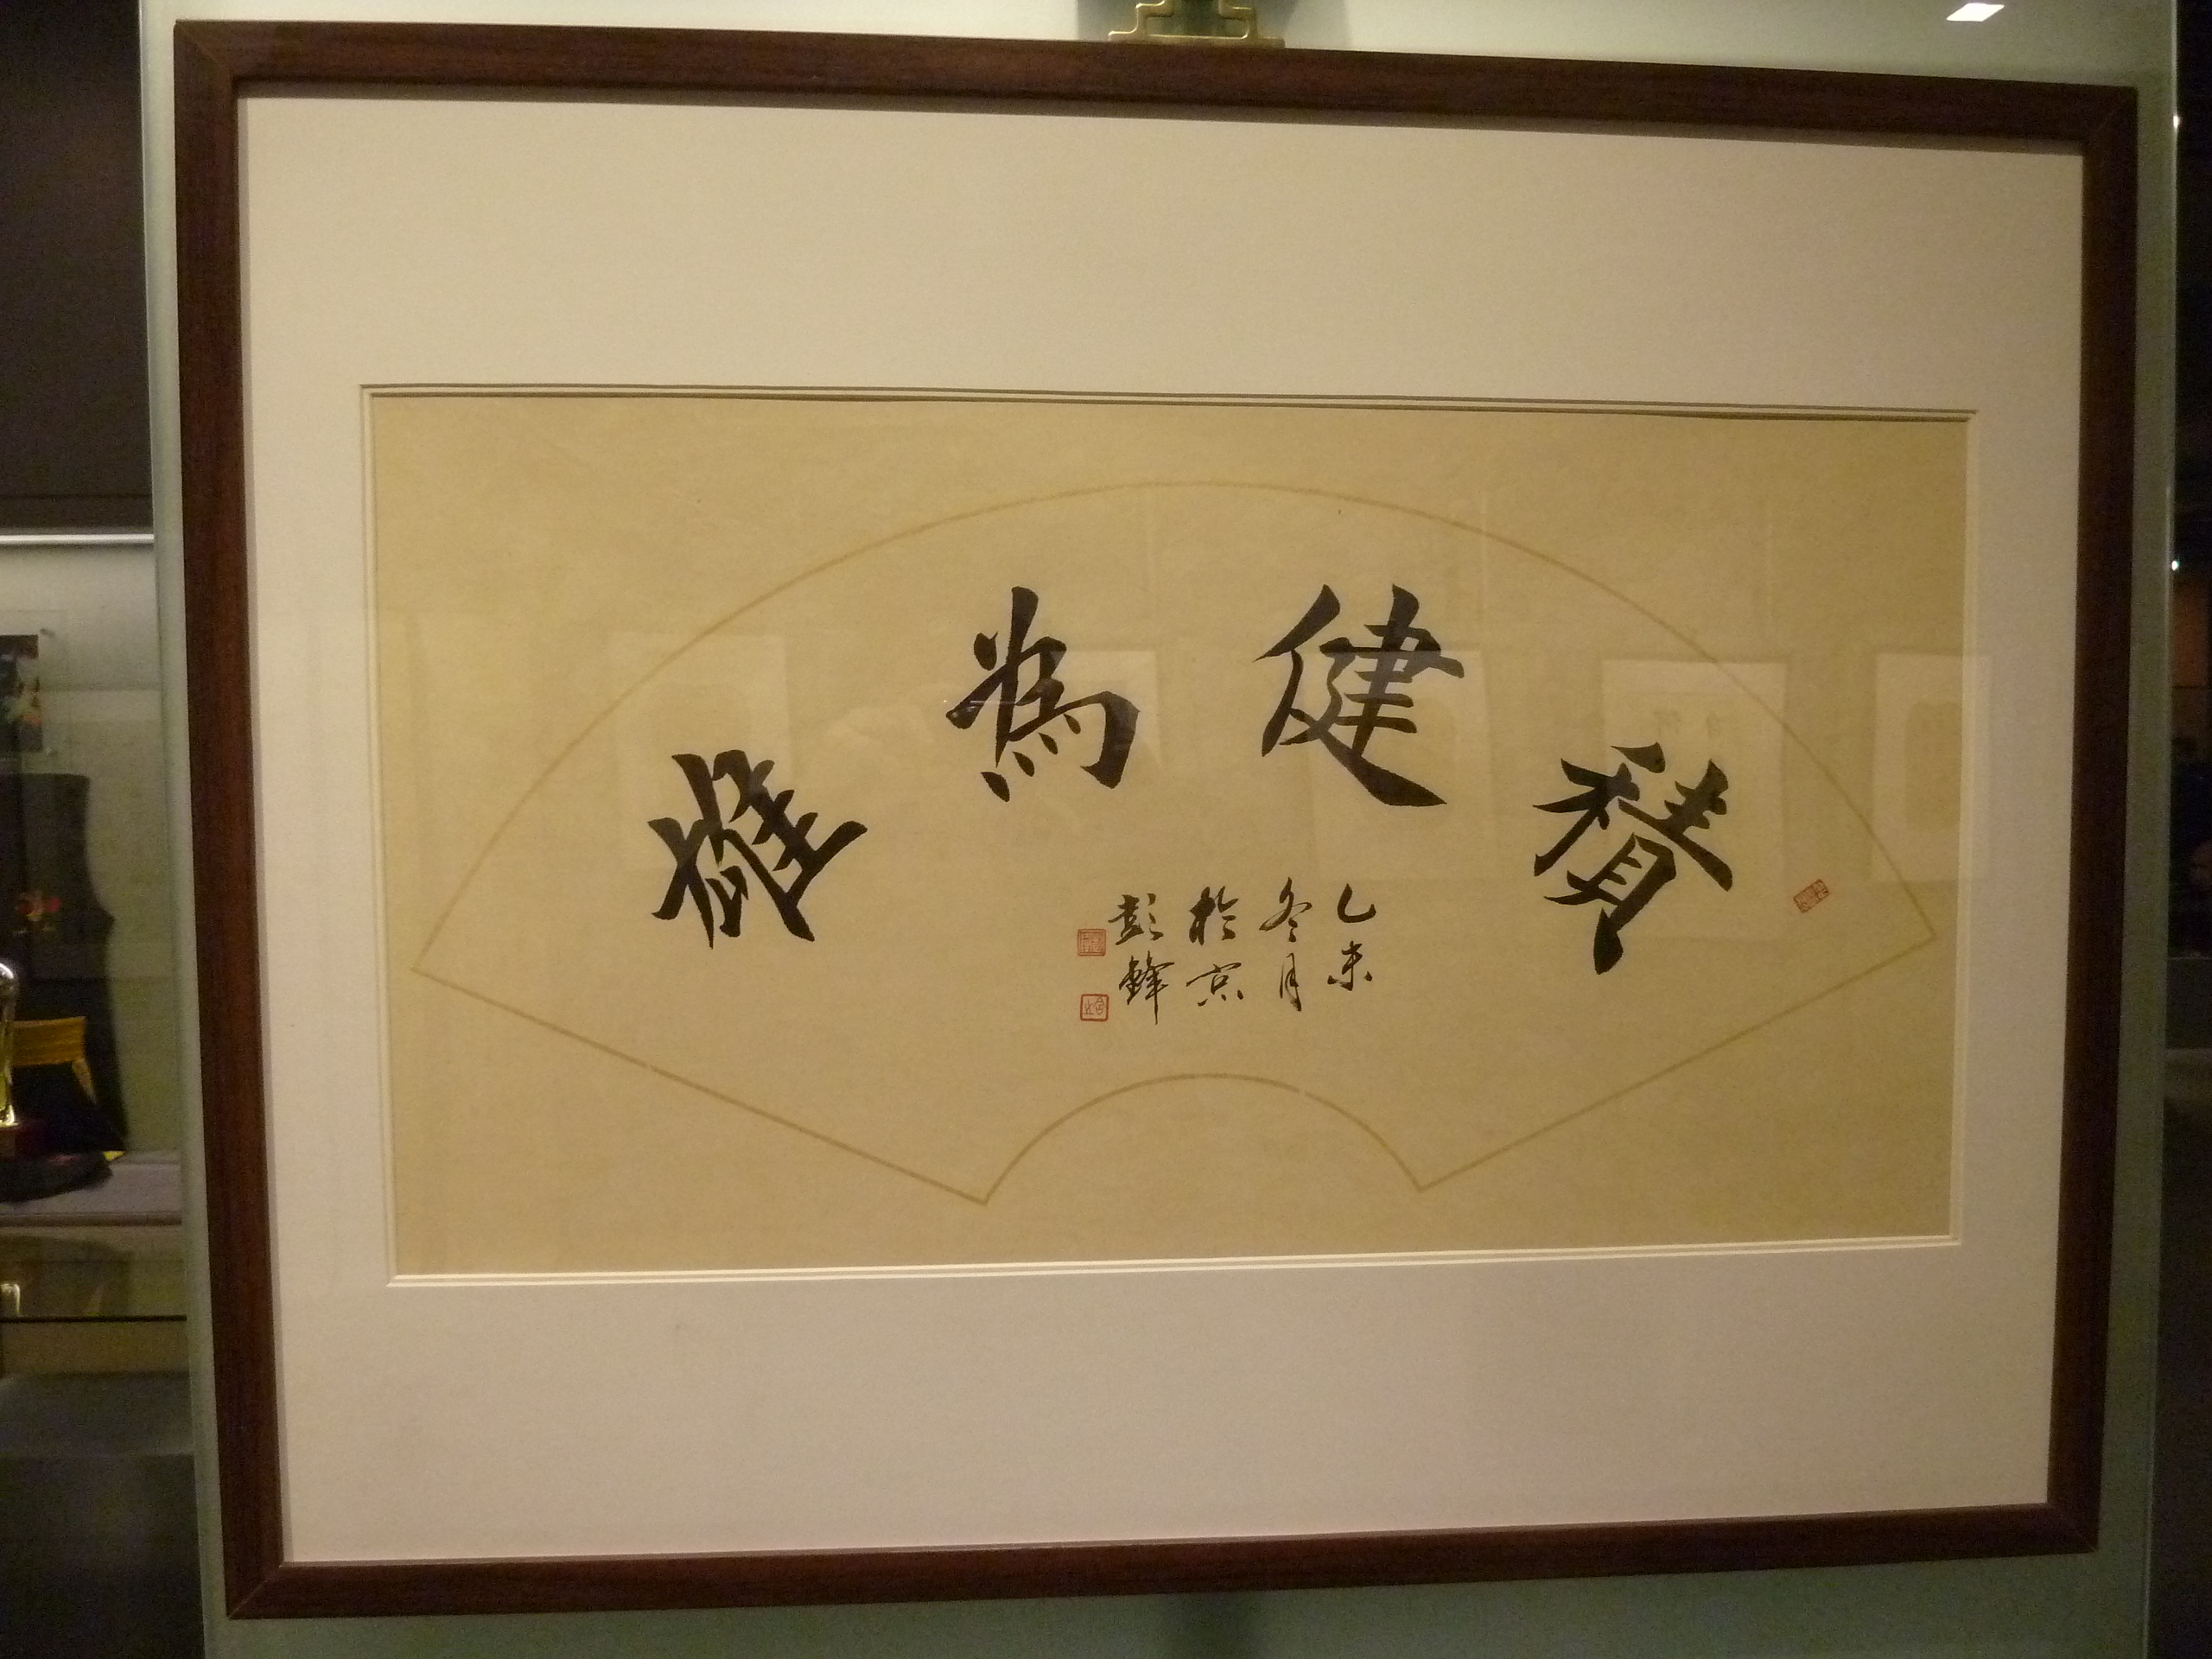 積健為雄
乙未
冬月
於京
彭鋒